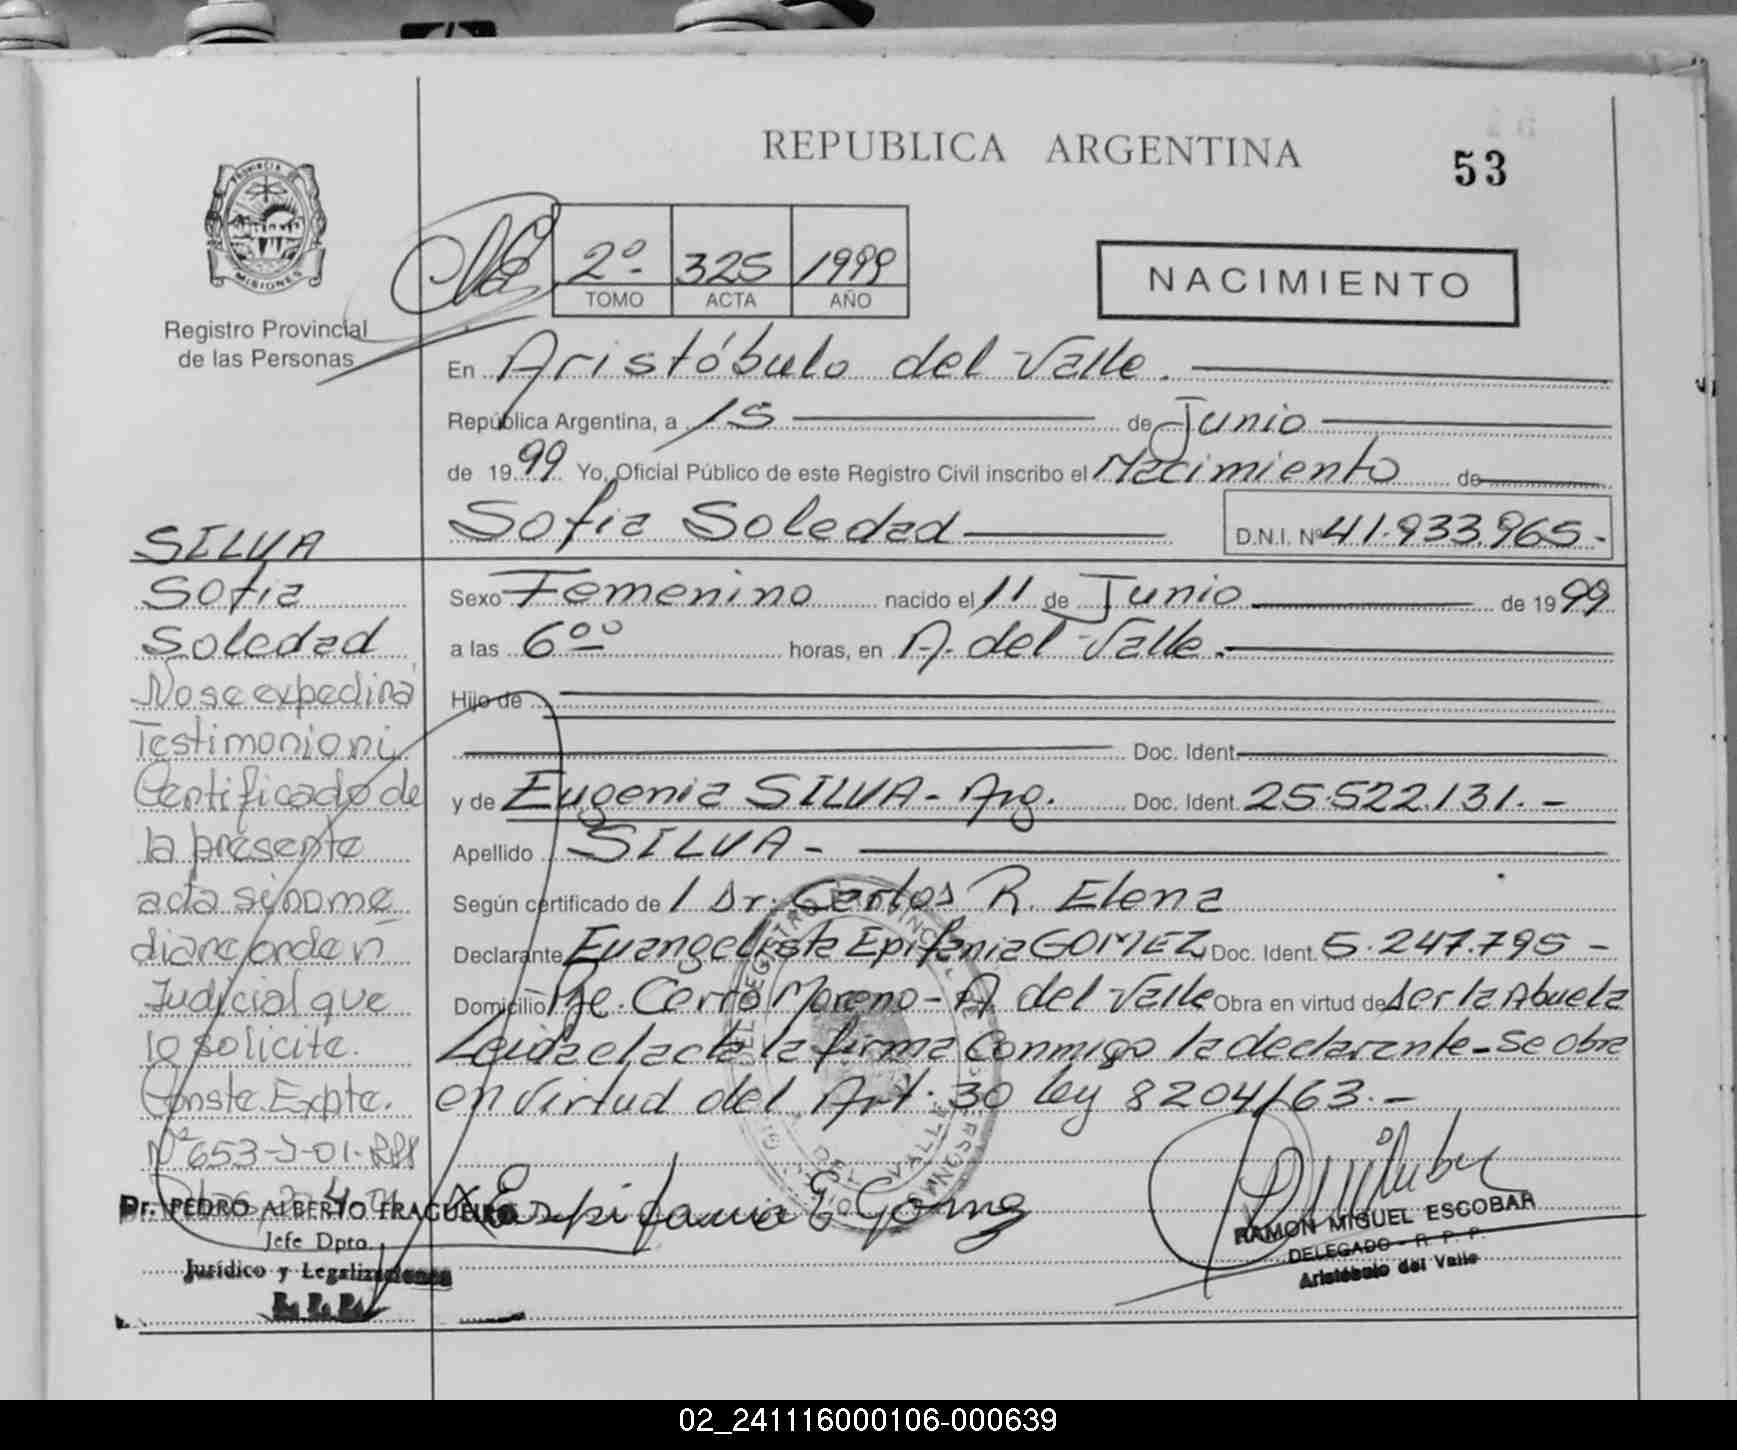 REPUBLICA ARGENTINA
53
PROVINCIA DE
MISIONES
Registro Provincial
de las Personas
2º- 325 1999
TOMO ACTA AÑO
NACIMIENTO
En Aristóbulo del Valle.
República Argentina, a 15 de Junio
de 1999 Yo, Oficial Público de este Registro Civil inscribo el Nacimiento de
Sofia Soledad D.N.I. Nº 41.933.965.-
Sexo Femenino nacido el 11 de Junio de 1999
a las 6ºº horas, en A. del Valle.
Hijo de
Doc. Ident.
y de Eugenia SILVA - Arg. Doc. Ident. 25.522.131.-
Apellido SILVA -
Según certificado de / Dr. Carlos R. Elena
Declarante Evangelista Epifania GOMEZ Doc. Ident. 5.247.795 -
Domicilio Pje. Cerro Moreno - A. del Valle Obra en virtud de ser la Abuela
Leida el acta la firma conmigo la declarante - se obra
en virtud del Art. 30 ley 8204/63.-
Epifania E Gomez
RAMON MIGUEL ESCOBAR
DELEGADO - R. P. P.
Aristóbulo del Valle
SILVA
Sofia
Soledad
No se expedirá
Testimonio ni
Certificado de
la presente
acta si no me
diare orden
Judicial que
lo solicite.
Conste. Expte.
Nº 653-J-01-
Dr. PEDRO ALBERTO FRAGUEIRO
Jefe Dpto.
Jurídico y Legalizaciones
R.P.P.
02_241116000106-000639